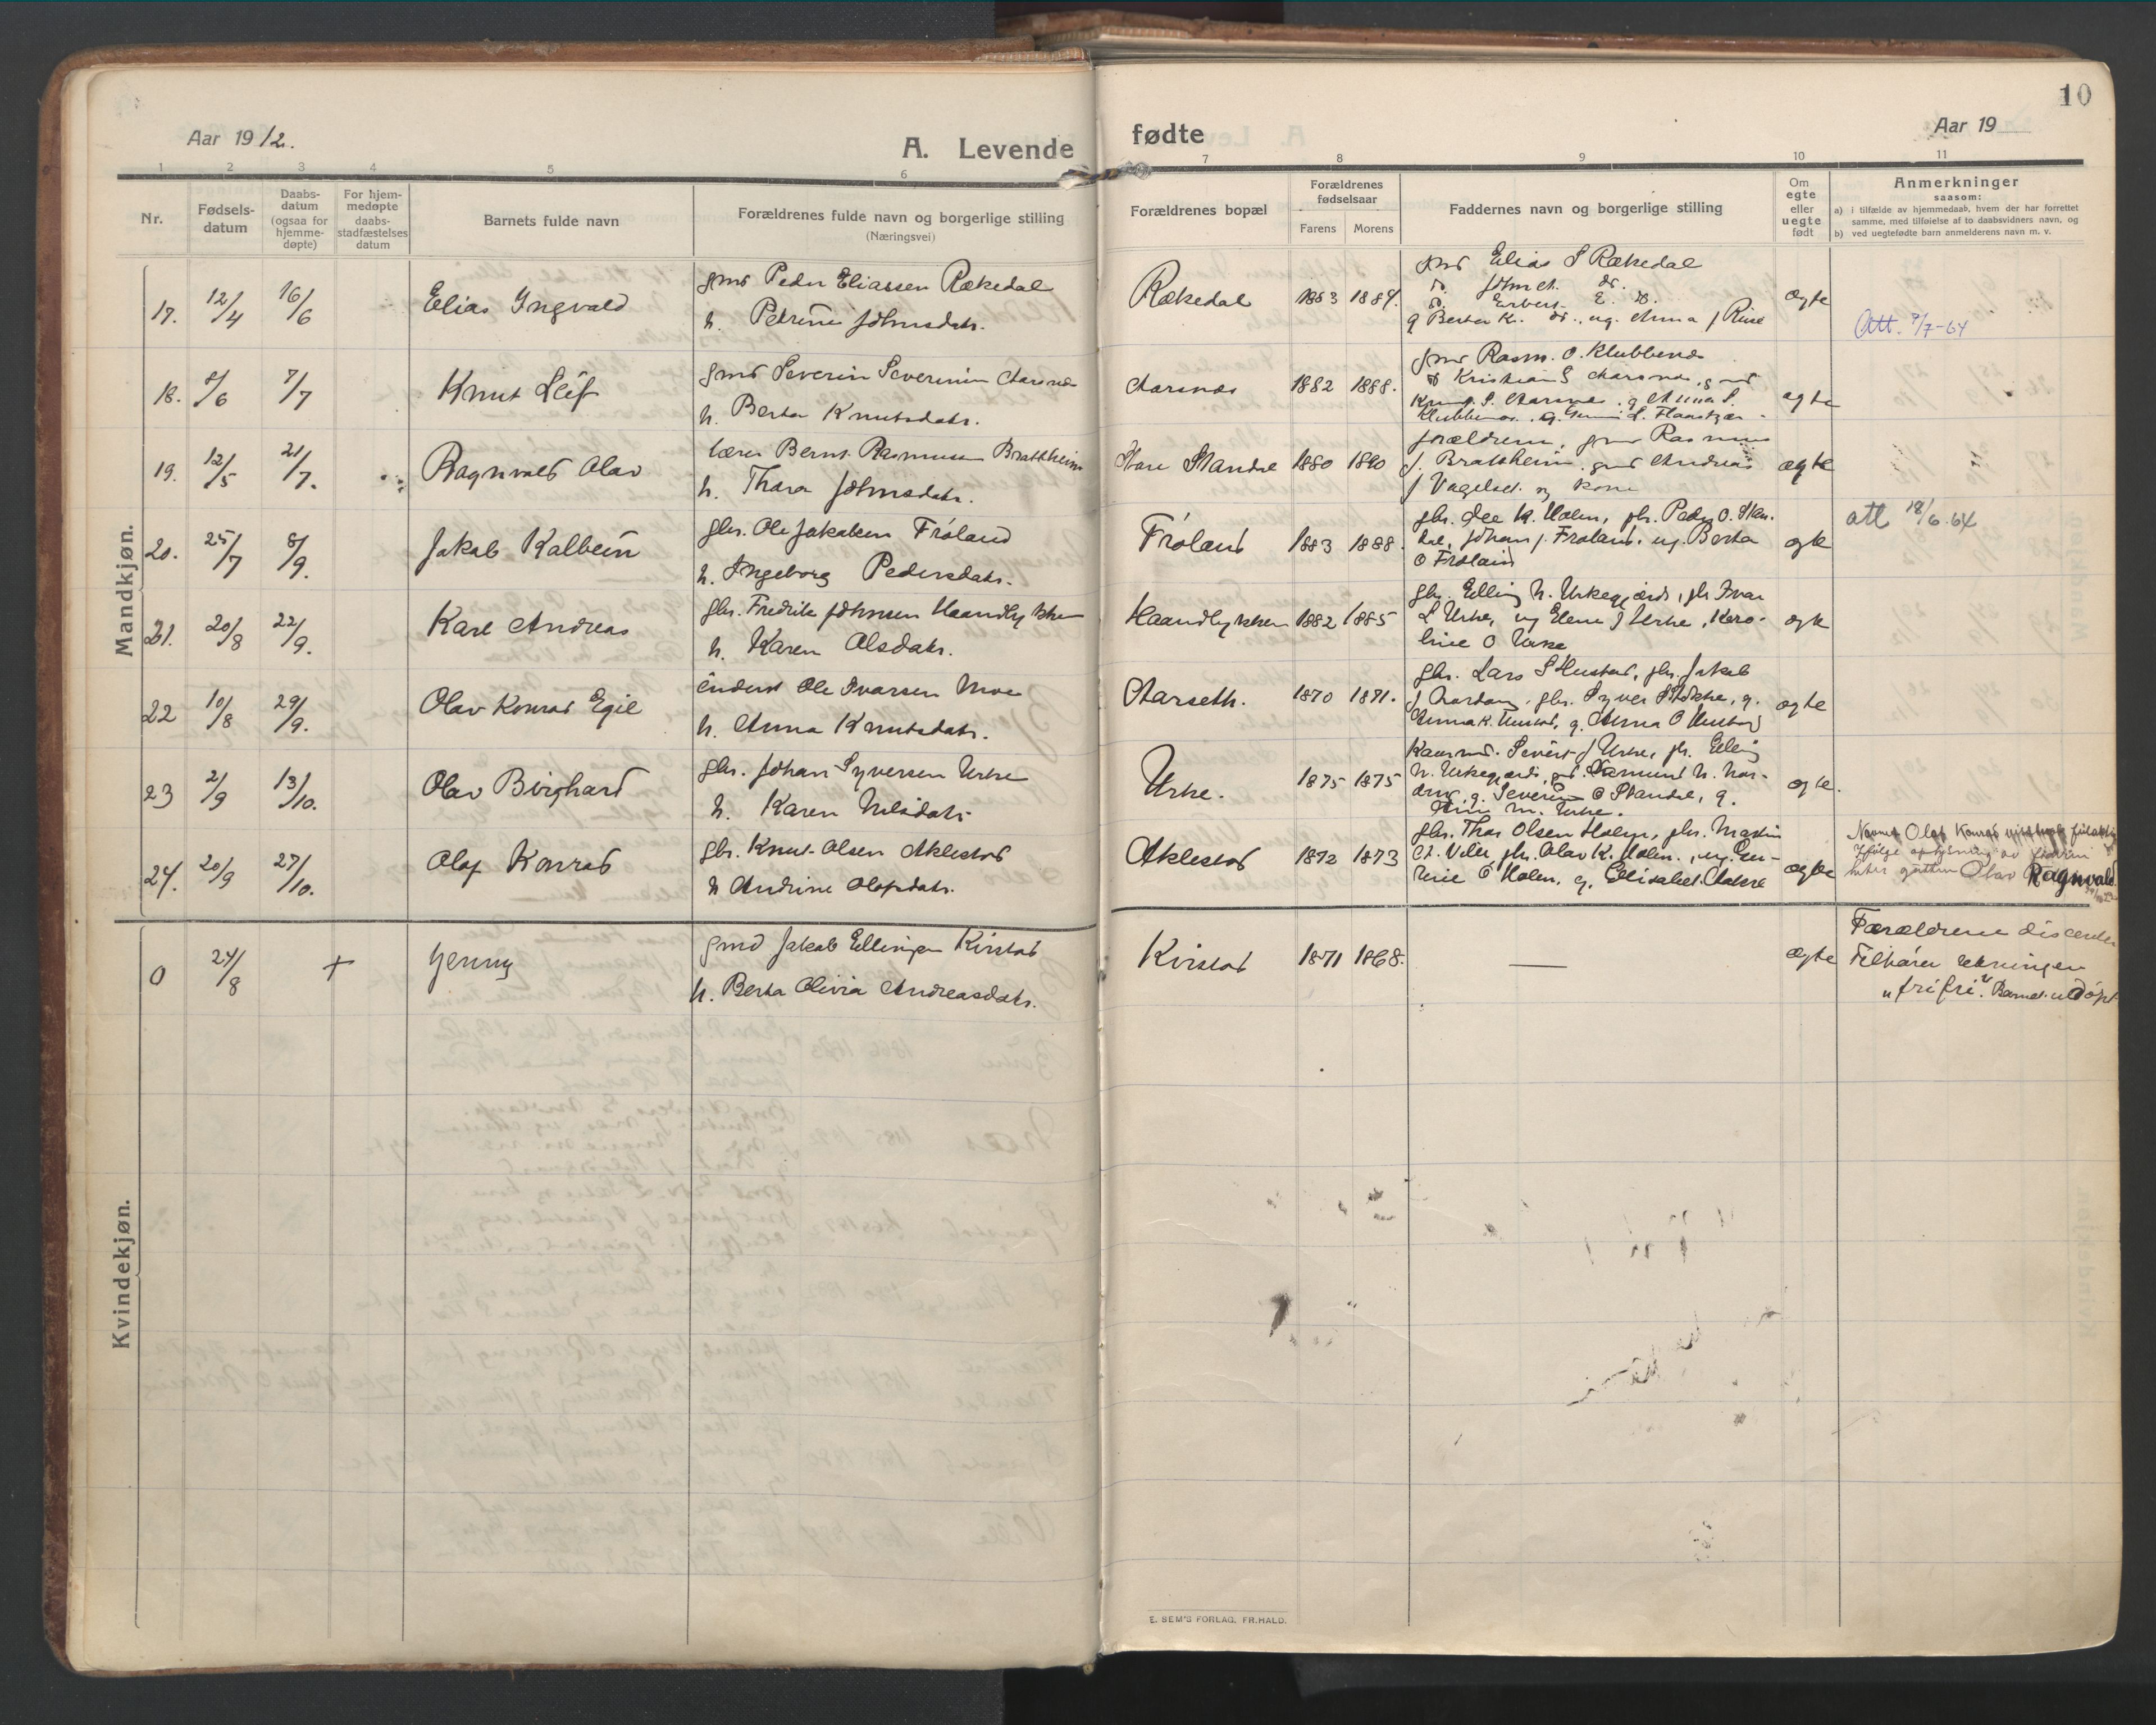 10
Aar 1912.
A. Levende
fødte
Aar 19
1 2 3 4 5 6 7 8 9 10 11
Nr.
Fødsels-
datum
Daabs-
datum
(ogsaa for
hjemme-
døpte)
For hjem-
medøpte
daabs-
stadfæstelses
datum
Barnets fulde navn
Forældrenes fulde navn og borgerlige stilling
(Næringsvei)
Forældrenes bopæl
Forældrenes
fødselsaar
Farens Morens
Faddernes navn og borgerlige stilling
Om
egte
eller
uegte
født
Anmerkninger
saasom:
a) i tilfælde av hjemmedaab, hvem der har forrettet
samme, med tilføielse af to daabsvidners navn, og
b) ved uegtefødte barn anmelderens navn m. v.
Mandkjøn.
17. 12/4 16/6 Elias Ingvald
gmd Peder Eliassen Rækedal
h. Petrine Johnsdatr.
Rækedal 1883 1884.
gmd Elias S Rækedal
do. John do.
do. E. do.
g Berta K. do., ug. Anna J Riise
ægte
Att. 9/7-64
18. 8/6 7/7 Knut Leif
gmd Severin Severinsen Aarsnes
h. Berta Knutsdatr.
Aarsnes 1882 1888.
gmd Rasm. O. Klubbenes
do Kristian S Aarsnes, gmd
Knut S. Aarsnes, g Anna S.
Klubbenes, g.
ægte
19. 12/5 21/7. Ragnvald Olav
lærer Bernt Rasmussen Brattheim
h. Thora Johnsdatr.
Store Standal 1880 1890
forældrene, gmd Rasmus
J. Brattheim, gmd Andreas
J Vagelset og kone
ægte
20. 25/7 8/9. Jakob Kalbein
gbr. Ole Jakobsen Fröland
h. Ingeborg Pedersdatr.
Fröland 1883 1888.
gbr. Ole K. Holen, gbr. Peder O. Stan-
dal, Johan J. Fröland, ug. Berta
O Fröland
ægte
att 18/6.64
21. 20/8 22/9. Karl Andreas
gbr. Fredrik Johnsen Haandlykken
h. Karen Olsdatr.
Haandlykken 1882 1885
gbr. Elling N. Urkegjerde, gbr Ivar
L Urke, ug Elene J Urke, Karo-
line O Urke
ægte
22 10/8 29/9. Olav Konrad Egil
inderst Ole Ivarsen Moe
h. Anna Knutsdatr.
Aarseth. 1870 1871.
gbr. Lars S Hustad, gbr. Jakob
J Aardang, gbr. Syver S Stokke, g.
Anna K. Hustad, g. Anna O Hustad
ægte
23 2/9 13/10. Olav Birghard
gbr. Johan Syversen Urke
h. Karen Nilsdatr.
Urke. 1875 1875
Kaarmd. Sivert J Urke, gbr. Elling
N. Urkegjerde, gmd. Osmund N. Nor-
dre, g. Severine O Standal, g.
M. Urke.
ægte.
24. 20/9 27/10. Olaf Konrad
gbr. Knut Olsen Aklestad
h Andrine Olafsdatr.
Aklestad 1872 1873
gbr. Thor Olsen Holen, gbr. Martin
A. Velle gbr. Olav K. Holen, ug. Gu-
rine O Holen, g. Elisabet Aakre
ægte
Navnet Olaf Konrad
Ifølge oplysning av
heter gutten Olav Ragnvald.
Kvindekjøn.
0 24/8 + Jenny
gmd Jakob Ellingsen Kirstad
h. Berta Olivia Andreasdatr.
Kvistad 1871 1868.
—
ægte
Forældrene dissenter
Tilhører retningen
„frifri". Barnet udöpt
E. SEM'S FORLAG, FR.HALD.